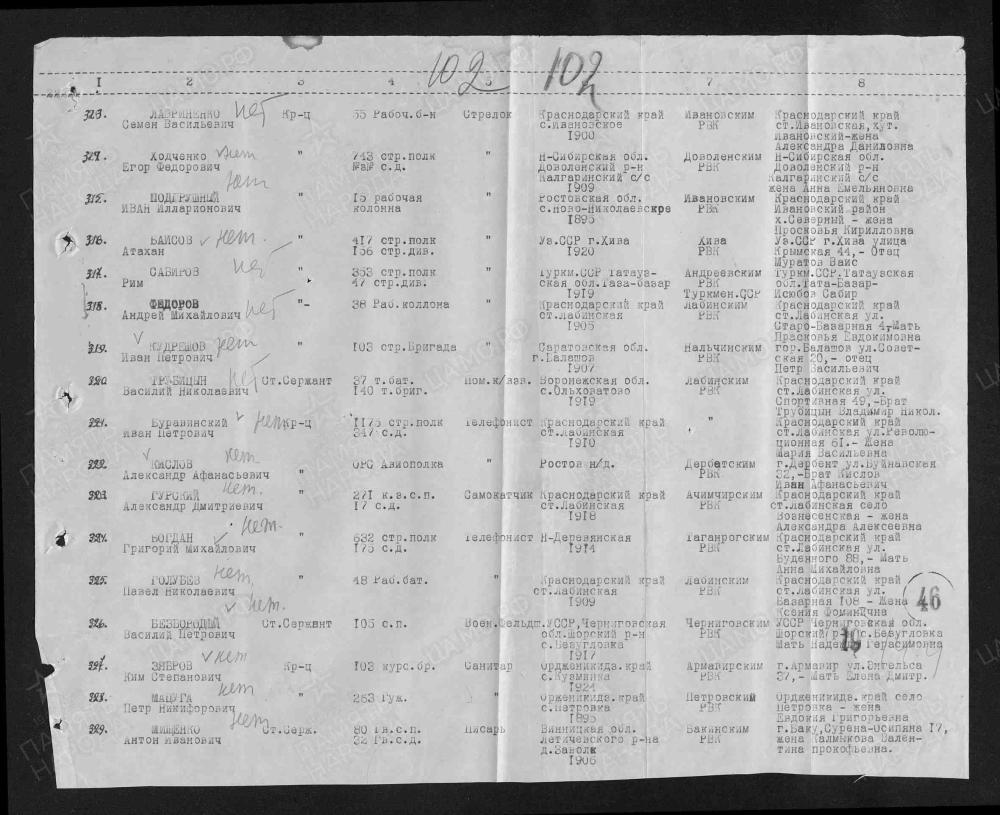 102 102
1 2 3 4 5 6 7 8
313. ЛАВРИНЕНКО нет Кр-ц 55 Рабоч.б-н Стрелок Краснодарский край Ивановским Краснодарский край
Семен Васильевич с.Ивановское РВК ст.Ивановская,хут.
1900 Ивановский-жена
Александра Даниловна
Ходченко нет " 743 стр.полк " Н-Сибирская обл. Доволенским Н-Сибирская обл.
Егор Федорович с.д. Доволенский р-н РВК Доволенский р-н
Калгаринский с/с Калгаринский с/с
нет 1909 жена Анна Емельяновна
315. ПОДГРУШНЫЙ " 15 рабочая " Ростовская обл. Ивановским Краснодарский край
ИВАН Илларионович колонна с.Ново-Николаевскре РВК Ивановский район
1895 х.Северный - жена
Просковья Кирилловна
316. БАИСОВ нет. " 417 стр.полк " Уз.ССР г.Хива Хива Уз.ССР г.Хива улица
Атахан 156 стр.див. 1920 РВК Крымская 44,- Отец
Муратов Ваис
317. САБИРОВ нет " 353 стр.полк " Туркм.ССР Татауз- Андреевским Туркм.ССР.Татаузская
Рим 47 стр.див. ская обл.Таза-базар РВК обл.Тата-Базар-
1919 Туркмен.ССР Исюбов Сабир
318. ФЕДОРОВ "- 38 Раб.коллона " Краснодарский край Лабинским Краснодарский край
Андрей Михайлович нет ст.Лабинская РВК ст.Лабинская ул.
1905 Старо-Базарная 4,-Мать
Прасковья Евдокимовна
319. КУДРЕШОВ нет " 103 стр.Бригада " Саратовская обл. Нальчинским гор.Балашов ул.Совет-
Иван Петрович г.Балашов РВК ская 20,- отец
1907 Петр Васильевич
320 ТРУБИЦЫН нет Ст.Сержант 37 т.бат. Пом.к/взв. Воронежская обл. Лабинским Краснодарский край
Василий Николаевич 140 т.бриг. с.Ольховатово РВК ст.Лабинская ул.
1919 Спортивная 49,-Брат
Трубицын Владимир Никол.
321. Буравинский нет Кр-ц 1175 стр.полк Телефонист Краснодарский край " Краснодарский край
Иван Петрович 347 с.д. ст.Лабинская ст.Лабинская ул.Револю-
1910 ционная 61.- Жена
Мария Васильевна
322. КИСЛОВ нет " ОРС Авиополка " Ростов н/д. Дербатским г.Дербент ул.Буйнавская
Александр Афанасьевич РВК 32,-Брат Кислов
Иван Афанасьевич
323 ГУРСКИЙ нет. " 271 к.з.с.п. Самокатчик Краснодарский край Ачимчирским Краснодарский край
Александр Дмитриевич 17 с.д. ст.Лабинская РВК ст.Лабинская село
1918 Вознесенская - жена
нет. Александра Алексеевна
324. БОГДАН " 632 стр.полк Телефонист Н-Деревянская Таганрогским Краснодарский край
Григорий Михайлович 175 с.д. 1914 РВК ст.Лабинская ул.
Буденного 88,- Мать
Анна Михайловна
325. ГОЛУБЕВ нет. " 48 Раб.бат. Краснодарский край Лабинским Краснодарский край
Павел Николаевич ст.Лабинская РВК ст.Лабинская ул.
1909 Базарная 108 - Жена 46
нет. Ксения Фоминична
326. БЕЗБОРОДЫЙ Ст.Сержант 105 с.п. Воен.Фельдш. УССР,Черниговская Черниговским УССР Черниговская обл.
Василий Петрович обл.Шорский р-н РВК Шорский/р-н с.Безугловка
с.Безугловка Мать Надежда Герасимовна
1917
327. ЗНЕРОВ нет Кр-ц 103 курс.бр. Санитар Орджениктдз.край Армавирским г.Армавир ул.Энгельса
Ким Степанович с.Кузминка РВК 37,- Мать Елена Дмитр.
1924
328. МАЦУГА нет " 263 Гуж. " Орженикидз.край Петровский Ордженикидз.край село
Петр Никифорович с.Петровка РВК Петровка - жена
1895 Евдокия Григорьевна
329. МИЩЕНКО нет Ст.Серж. 80 Гв.с.п. Писарь Винницкая обл. Бакинским г.Баку,Сурена-Осипяна 17,
Антон Иванович 32 Гв.с.д. Летичевского р-на РВК жена Калмыкова Вален-
д.Заволк тина прокофьевна.
1906